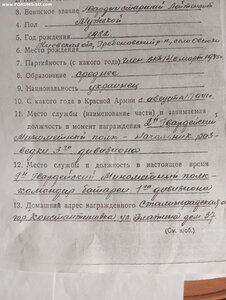 FORUMS-SU.COM
3. Воинское звание Гвардии старший лейтенант
4. Пол Мужской
5. Год рождения 1922
6. Место рождения Киевская обл, Гребенковский р-н, село
7. Партийность (с какого года) член ВКП(б) с март 1945г
8. Образование среднее
9. Национальность украинец
10. С какого года в Красной Армии с августа 1941г
11. Место службы (наименование части) и занимаемая
должность в момент награждения Гвардейский
Минометный полк – Начальник раз-
ведки 3го дивизиона
12. Место службы и должность в настоящее время
Гвардейский Минометный полк-
командир батареи 1го дивизиона
13. Домашний адрес награжденного Сталинградская о
гор. Константиновка ул. дом 37
(См. н/об.)